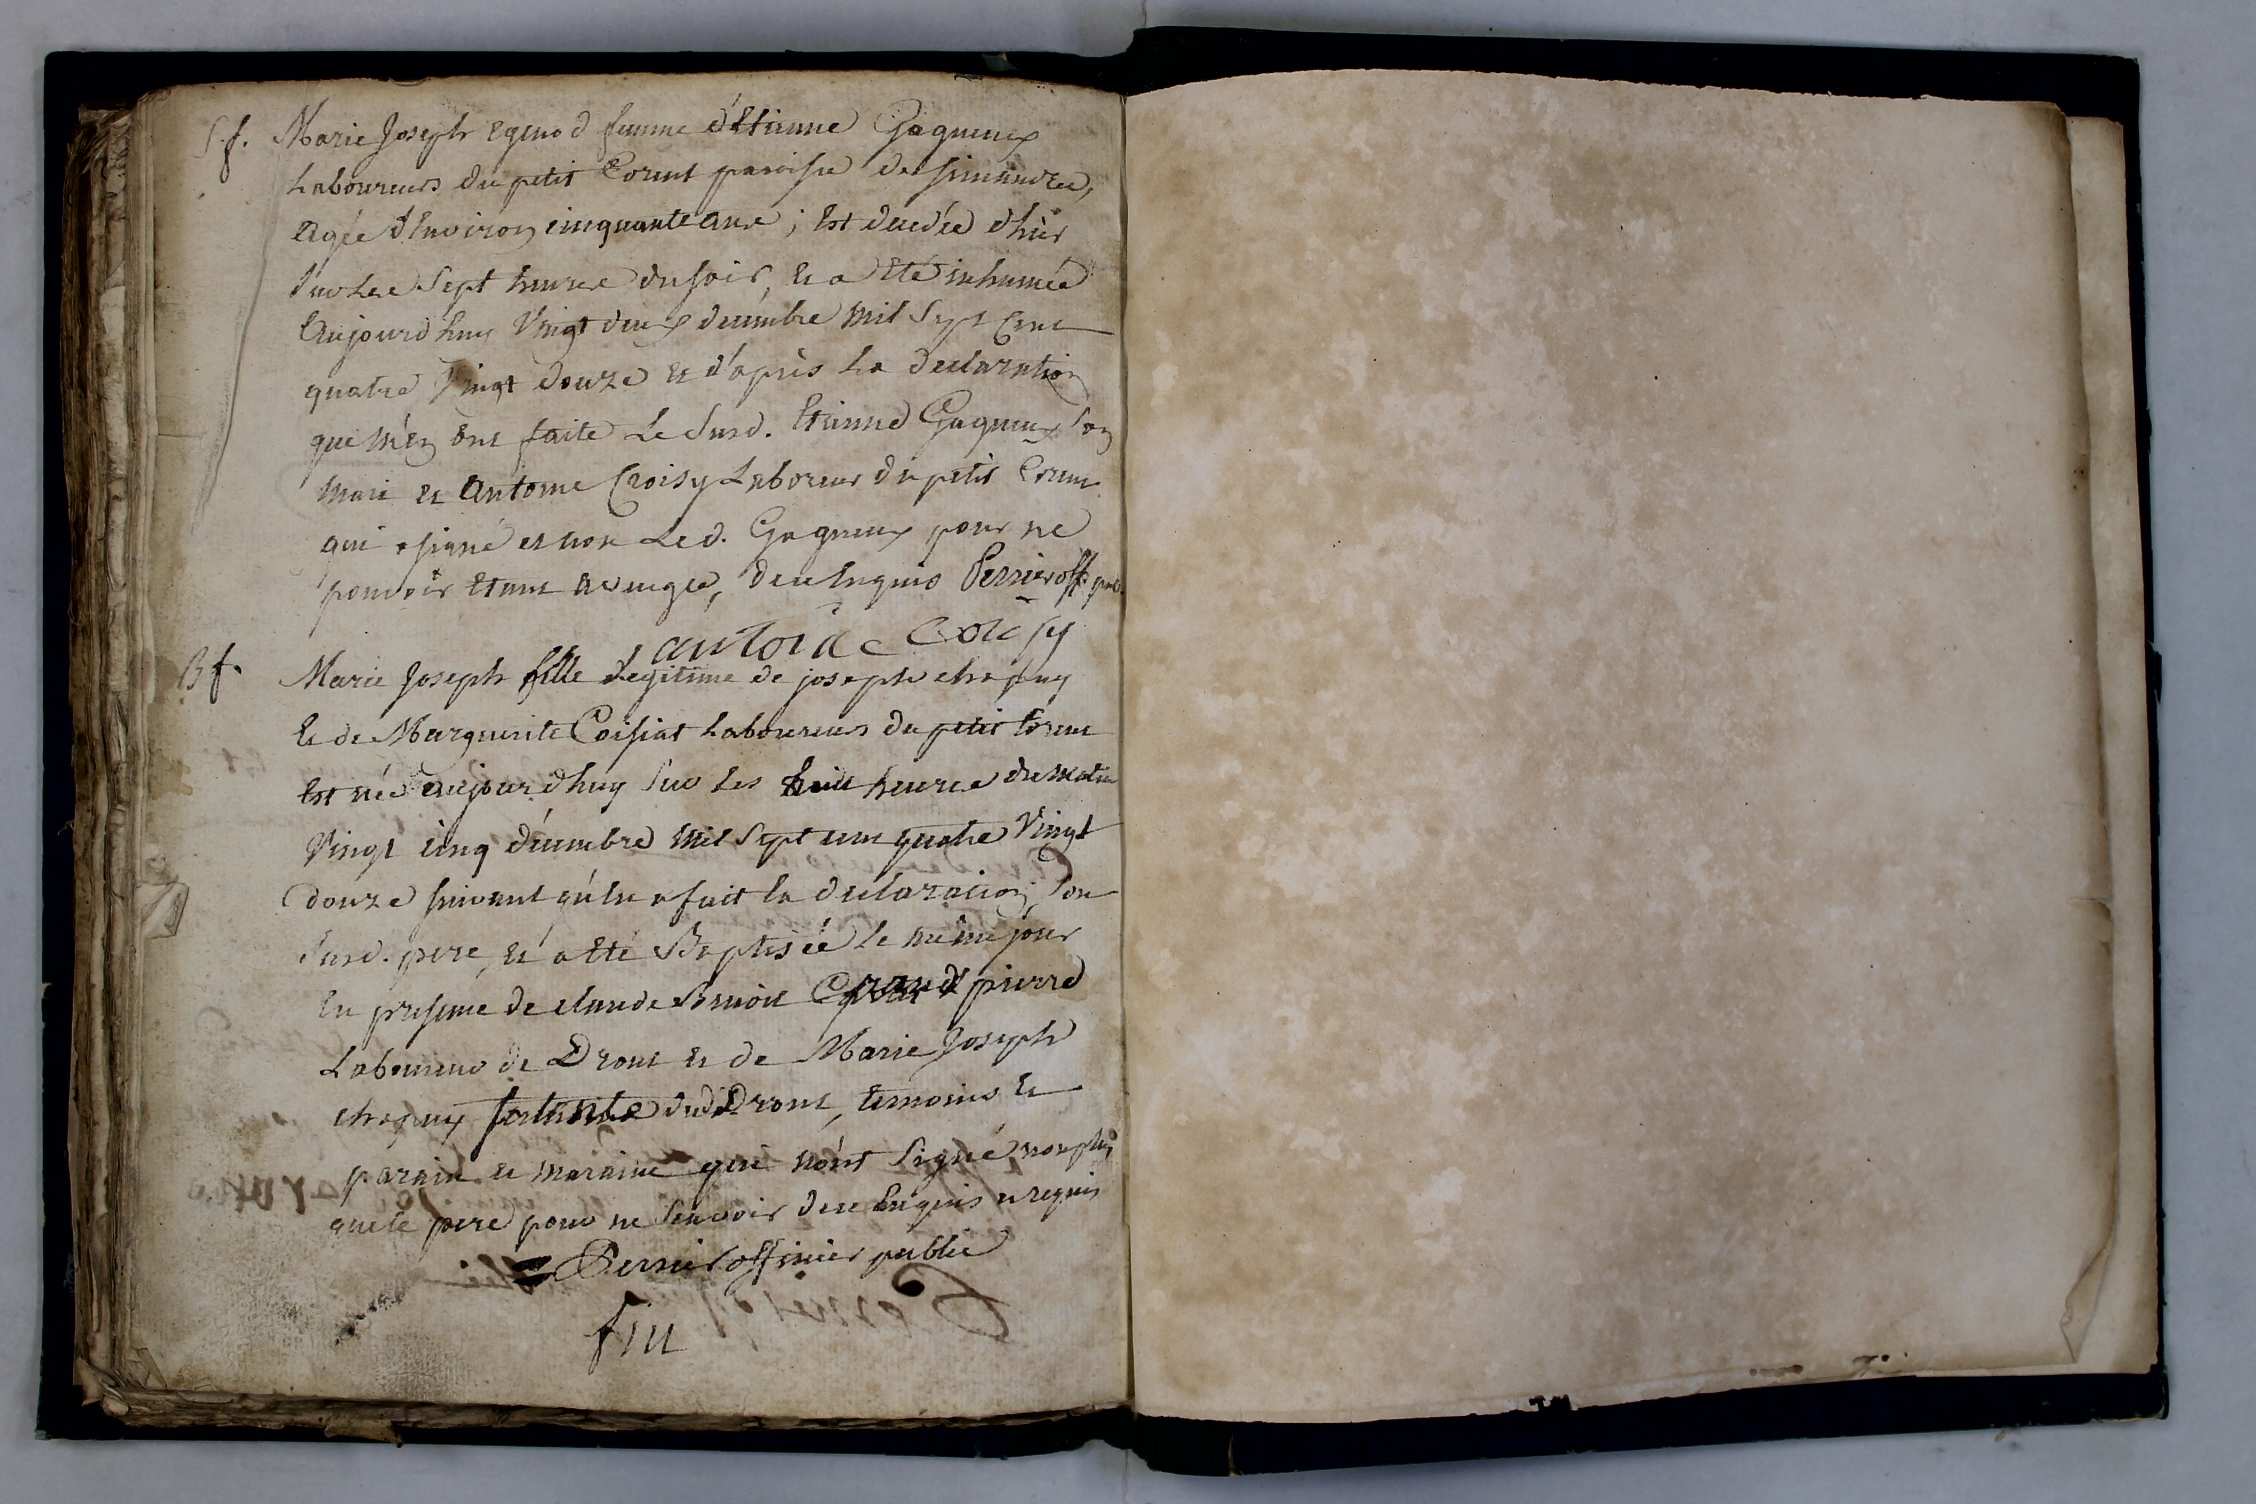 S f. Marie Joseph Egenod femme d'Etienne Gagneux
Laboureurs du petit Corent paroisse de simandre,
agée d'Environ cinquante ans ; Est decedée d'hier
sur Les Sept heures du soir, et a Eté inhumée
aujourd huy Vingt deux decembre mil Sept Cent
quatre Vingt douze et d'après La declaration
que m'en ont faite Le Susd. Etienne Gagneux son
mari et antoine Croisy Laboreur du petit Corent
qui a signé et non Led. Gagneux pour ne
pouvoir Etant aveugle, de ce Enquis Perrier off. pub.
antoine Coissy
B f. Marie Joseph fille Legitime de joseph chapuy
Et de Marguerite Coisiat Laboureurs du petit Corent
Est née aujourd huy sur les huit heures du matin
Vingt cinq décembre mil Sept cent quatre Vingt
douze suivant qu'en a fait la declaration, son
Susd. pere, et a été Baptisée le même jour
En presence de claude Benoit grand pierre
Laboureur de Drom et de Marie Joseph
chapuy dud. Drom, temoins et
parain et maraine qui n'ont Signé non plus
que le pere pour ne sçavoir de ce Enquis et requis
Perrier officier public
fin